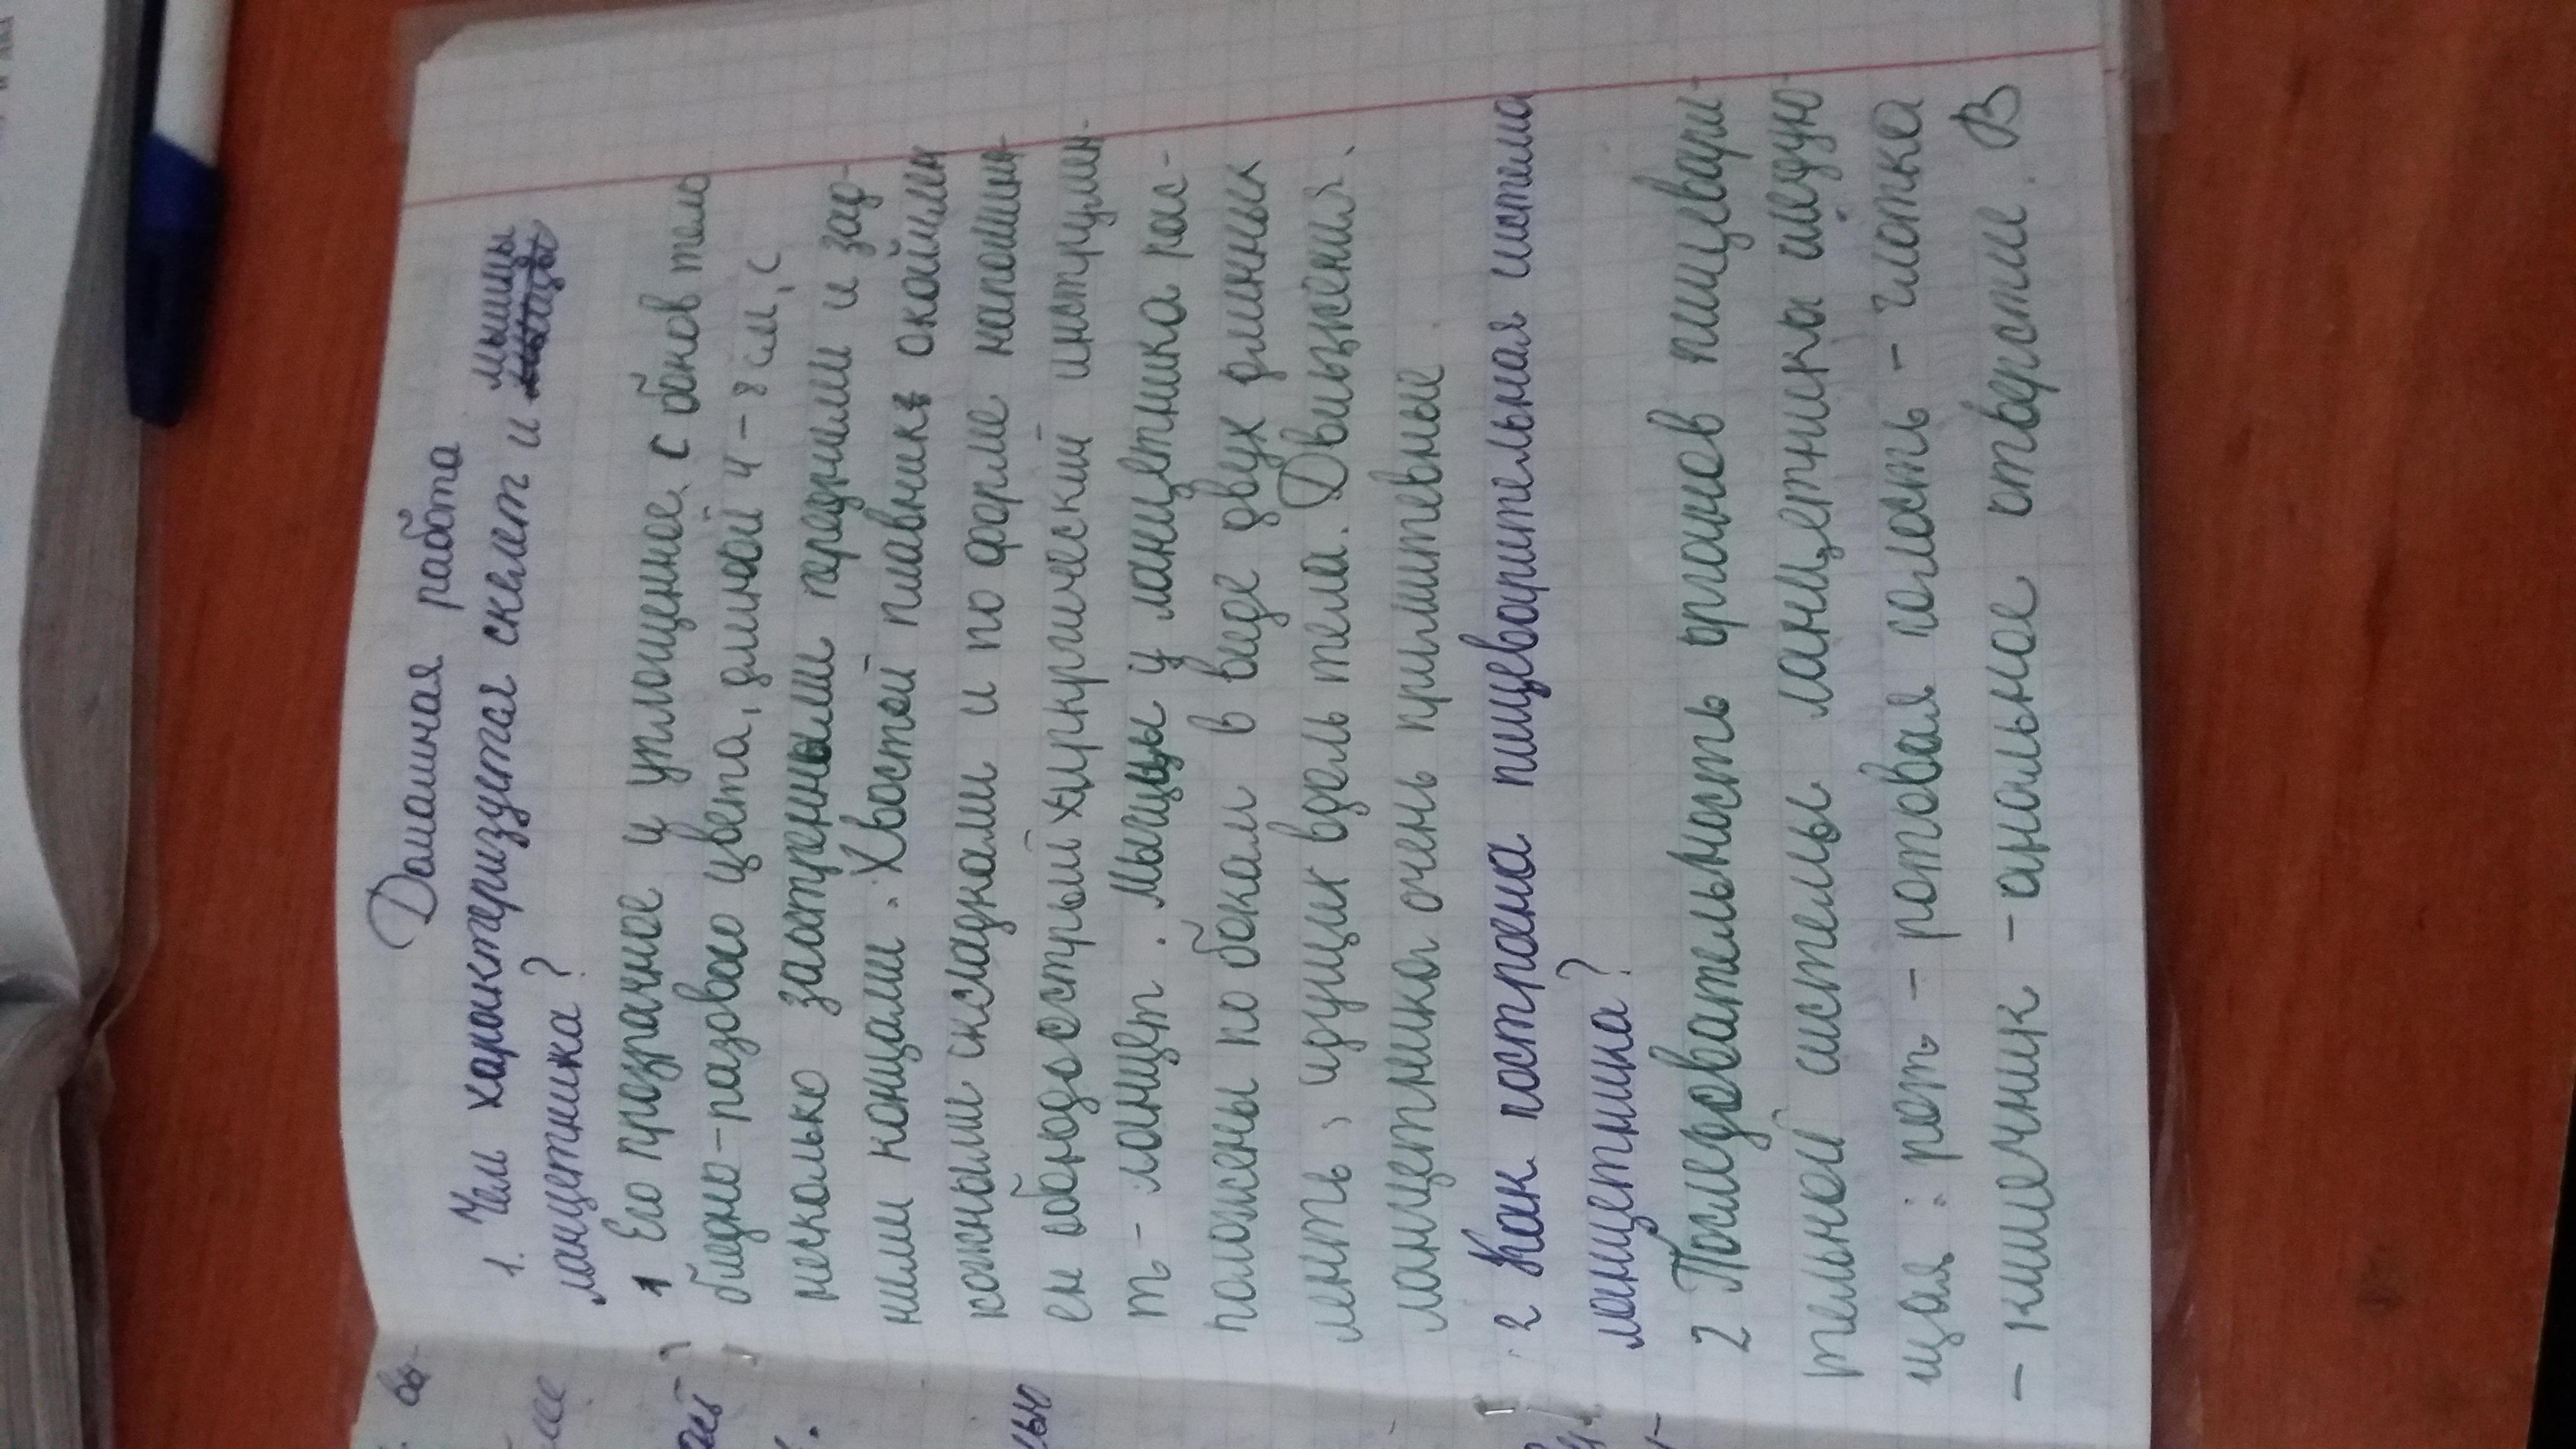 Домашняя работа
1. Чем характеризуется скелет и мышцы
ланцетника?
1 Его прозрачное и уплощенное с боков тело
бледно-розовою цвета, длиной 4-8 см, с
несколько заостренными передними и зад-
ними концами. Хвостой плавник окаймлен
кожными складками и по форме напомина-
ен обоюдоострый хиркргический инструмен-
т - ланцет. Мышцы у ланцетника рас-
положены по бокам в виде двух длинных
лент, идущих вдоль тела. Движения
ланцетника очень примитевные
2 Как построена пищеварительная система
ланцетника?
2 Последовательность органов пищевари-
тельной системы ланцетника следую-
щая: рот - ротовая полость - глотка
- кишечник - анальное отверстие. В
ви-
ью